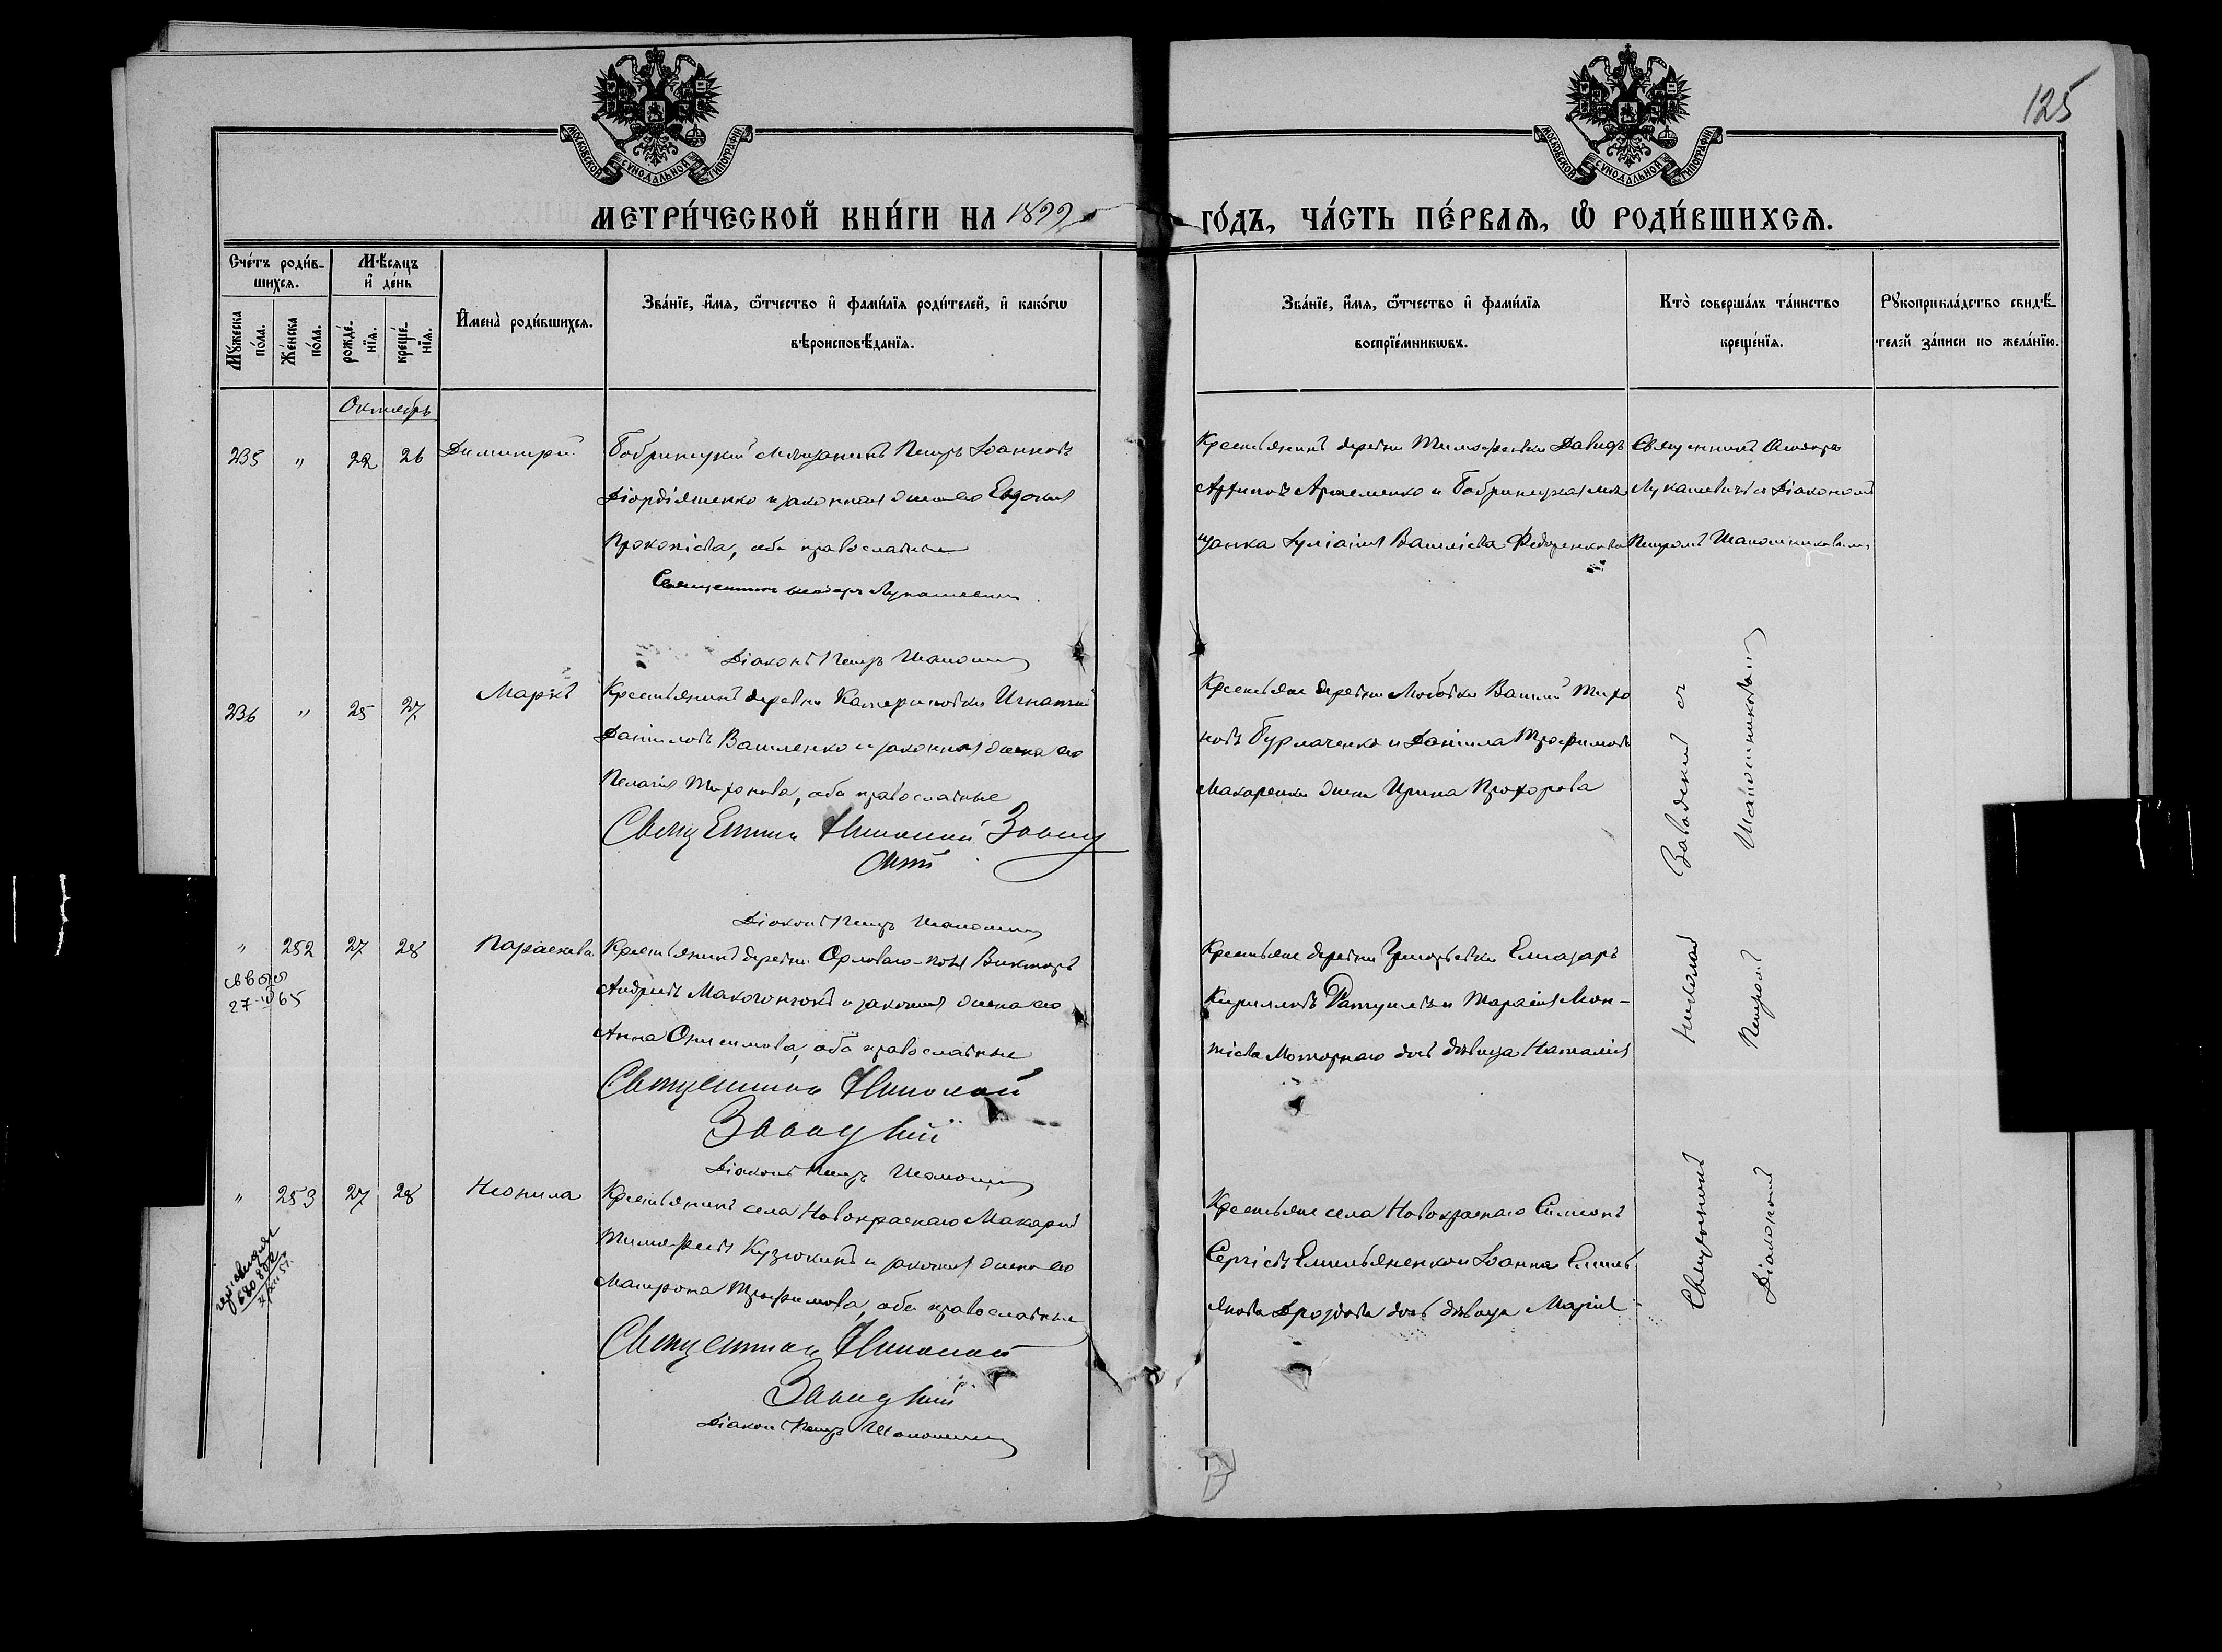 125
МОСКОВСКОЙ СѴНОДАЛЬНОЙ ТИПОГРАФІИ
МОСКОВСКОЙ СѴНОДАЛЬНОЙ ТИПОГРАФІИ
МЕТРИ́ЧЕСКОЙ КНИ́ГИ НА 1899
ГО́ДЪ, ЧА́СТЬ ПЕ́РВАѦ, Ѡ҆ РОДИ́ВШИХСѦ.
Сче́тъ роди́в-
шихсѧ.
Мѣ́сѧцъ
и҆ де́нь
Мꙋ́жеска по́ла.
Же́нска по́ла.
рожде́-
нїѧ.
креще́-
нїѧ.
И҆мена̀ роди́вшихсѧ.
Зва́нїе, и҆́мѧ, ѻ҆́тчество и҆ фами́лїѧ роди́телей, и҆ како́гѡ
вѣроисповѣ́данїѧ.
Зва́нїе, и҆́мѧ, ѻ҆́тчество и҆ фами́лїѧ
воспрїе́мникѡвъ.
Кто̀ соверша́лъ та́инство
креще́нїѧ.
Рꙋкоприкла́дство свидѣ́-
телей за́писи по жела́нїю.
Октябрь
235 " 22 26 Димитрій
Бобринецкій мѣщанинъ Петръ Іоанновъ
и законная жена его Евдокія
Прокопіева, оба православные
Священникъ Лукашевичъ
Діаконъ Петръ Шапошник
Крестьянинъ деревни Тимофеевки Давидъ
Артеменко и Бобринецкая мѣ-
щанка Іуліанія Василіева Федоренкова
Священникъ
Лукашевичъ съ Діакономъ
Петромъ Шапошниковымъ
236 " 25 27 Маркъ
Крестьянинъ деревни Катериновки Игнатій
Даніиловъ Василенко и законная жена его
Пелагія Тихонова, оба православные
Священникъ Николай Завад
скій
Діаконъ Петръ Шапошник
Крестьяне деревни Любовки Василій Тихо
новъ Бурлаченко и Даніила Трофимова
Макаренки жена Ирина Прохорова
" 252 27 28 Параскева
27-IV 65
Крестьянинъ деревни Орловой-Поч Викторъ
Андреевъ Макогончукъ и законная жена его
Анна Онисимова, оба православные
Священникъ Николай
Завадскій
Діаконъ Петръ Шапошник
Крестьяне деревни Григорьевки Елиазаръ
Кирилловъ Ратушевъ и Тарасія Леон-
тіева Моторнаго дочь дѣвица Наталія
" 253 27 28 Неонила
Крестьянинъ села Новокраснаго Макарій
Тимофеевъ Кузюкинъ и законная жена его
Матрона Трофимова, оба православные
Священникъ Николай
Завадскій
Діаконъ Петръ Шапошник
Крестьяне села Новокраснаго Симеонъ
Сергіевъ Емельяненко и Іоанна Емель
янова Дроздова дочь дѣвица Марія
Священникъ Николай Завадскій съ
Діакономъ Петромъ Шапошниковымъ